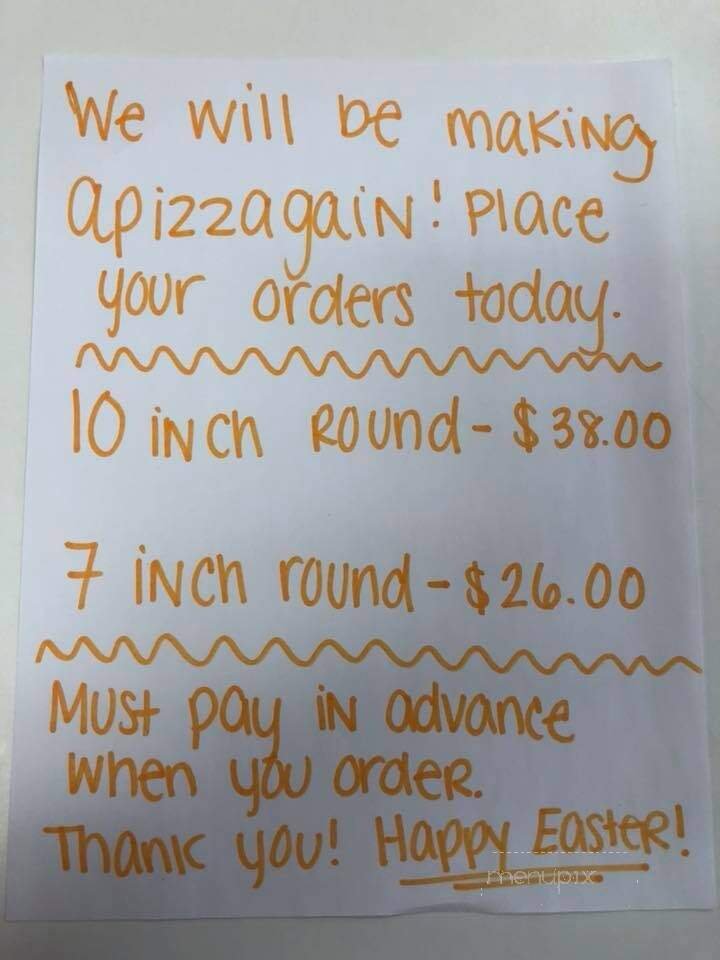 We will be making
apizzagain! Place
your orders today.
10 inch Round - $38.00
7 inch round - $26.00
Must pay in advance
when you order.
Thank you! Happy Easter!
menupix